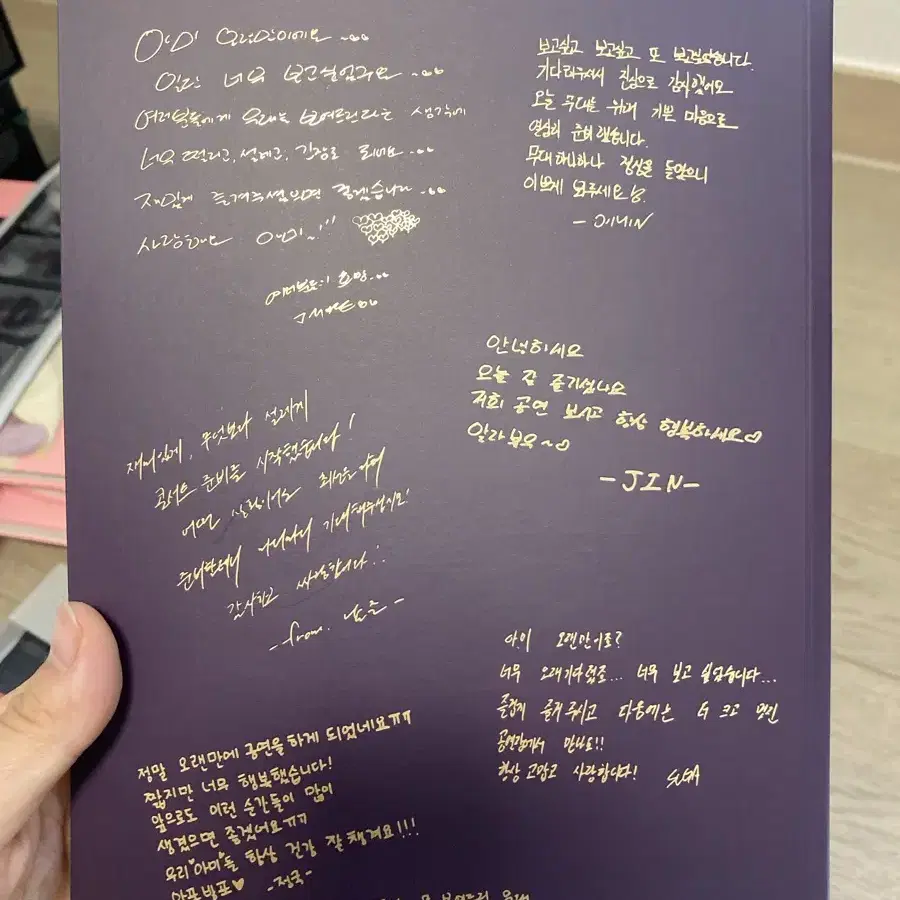 아미 오랜만이에요 ...
일단 너무 보고싶었구요 ...
여러분들에게 무대를 보여드린다는 생각에
너무 떨리고, 설레고, 긴장도 되네요 ...
재밌게 즐겨주셨으면 좋겠습니다 ...
사랑해요 아미~!!
여러분들의 희망...
보고싶고 보고싶고 또 보고싶었습니다.
기다려주셔서 진심으로 감사했어요
오늘 무대를 위해 기쁜 마음으로
열심히 준비했습니다.
무대 하나하나 정성을 들였으니
이쁘게 봐주세요
- JIMIN
안녕하세요
오늘 잘 즐기셨나요
저희 공연 보시고 항상 행복하세요♡
알라뷰요~♡
- JIN -
재미있게, 무엇보다 설레게
콘서트 준비를 시작했습니다!
어떤 실황이어도 최선을 다해
준비할테니 기대해주십시오!
감사하고 싸랑합니다..
- from. 남준 -
아미 오랜만이죠?
너무 오래기다렸죠... 너무 보고 싶었습니다...
즐겁게 즐겨주시고 다음에는 더 크고 멋진
공연장에서 만나요!!
항상 고맙고 사랑합니다! SUGA
정말 오랜만에 공연을 하게 되었네요ㅠㅠ
짧지만 너무 행복했습니다!
앞으로도 이런 순간들이 많이
생겼으면 좋겠어요ㅠㅠ
우리♥아미♥들 항상 건강 잘 챙겨요!!!
아포방포♥ -정국-